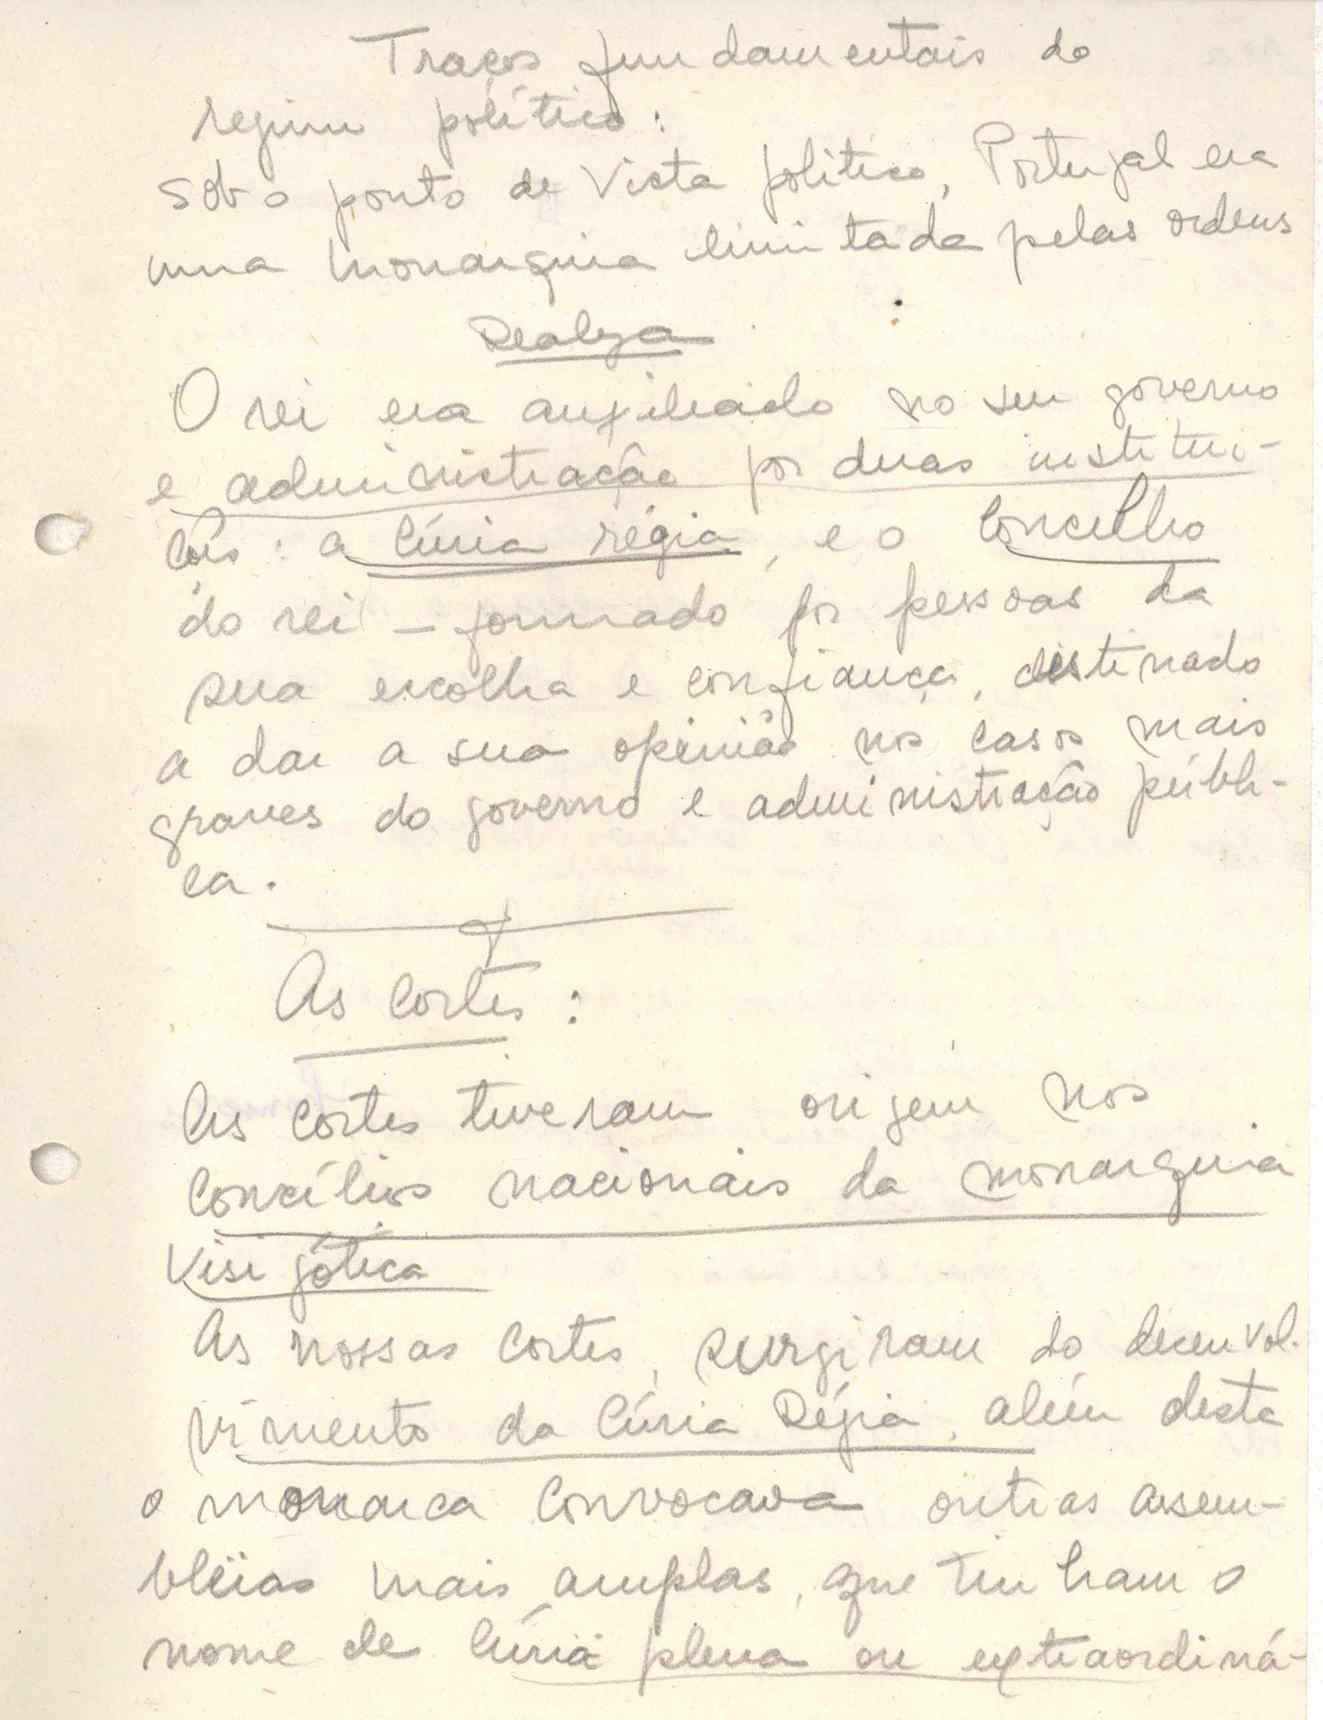 Traços fundamentais do
regime político:
sob o ponto de vista político, Portugal era
uma monarquia limitada pelas ordens
Realeza
O rei era auxiliado no seu governo
e administração por duas institui-
ções: a Cúria régia, e o Concelho
do rei – formado por pessoas da
sua escolha e confiança, destinado
a dar a sua opinião nos casos mais
graves do governo e administração públi-
ca.
As Cortes:
As cortes tiveram origem nos
Concílios nacionais da monarquia
Visigótica
As nossas Cortes, surgiram do desenvol-
vimento da Cúria Régia, além desta
o monarca convocava outras assem-
bleias mais amplas, que tinham o
nome de Cúria plena ou extraordiná-